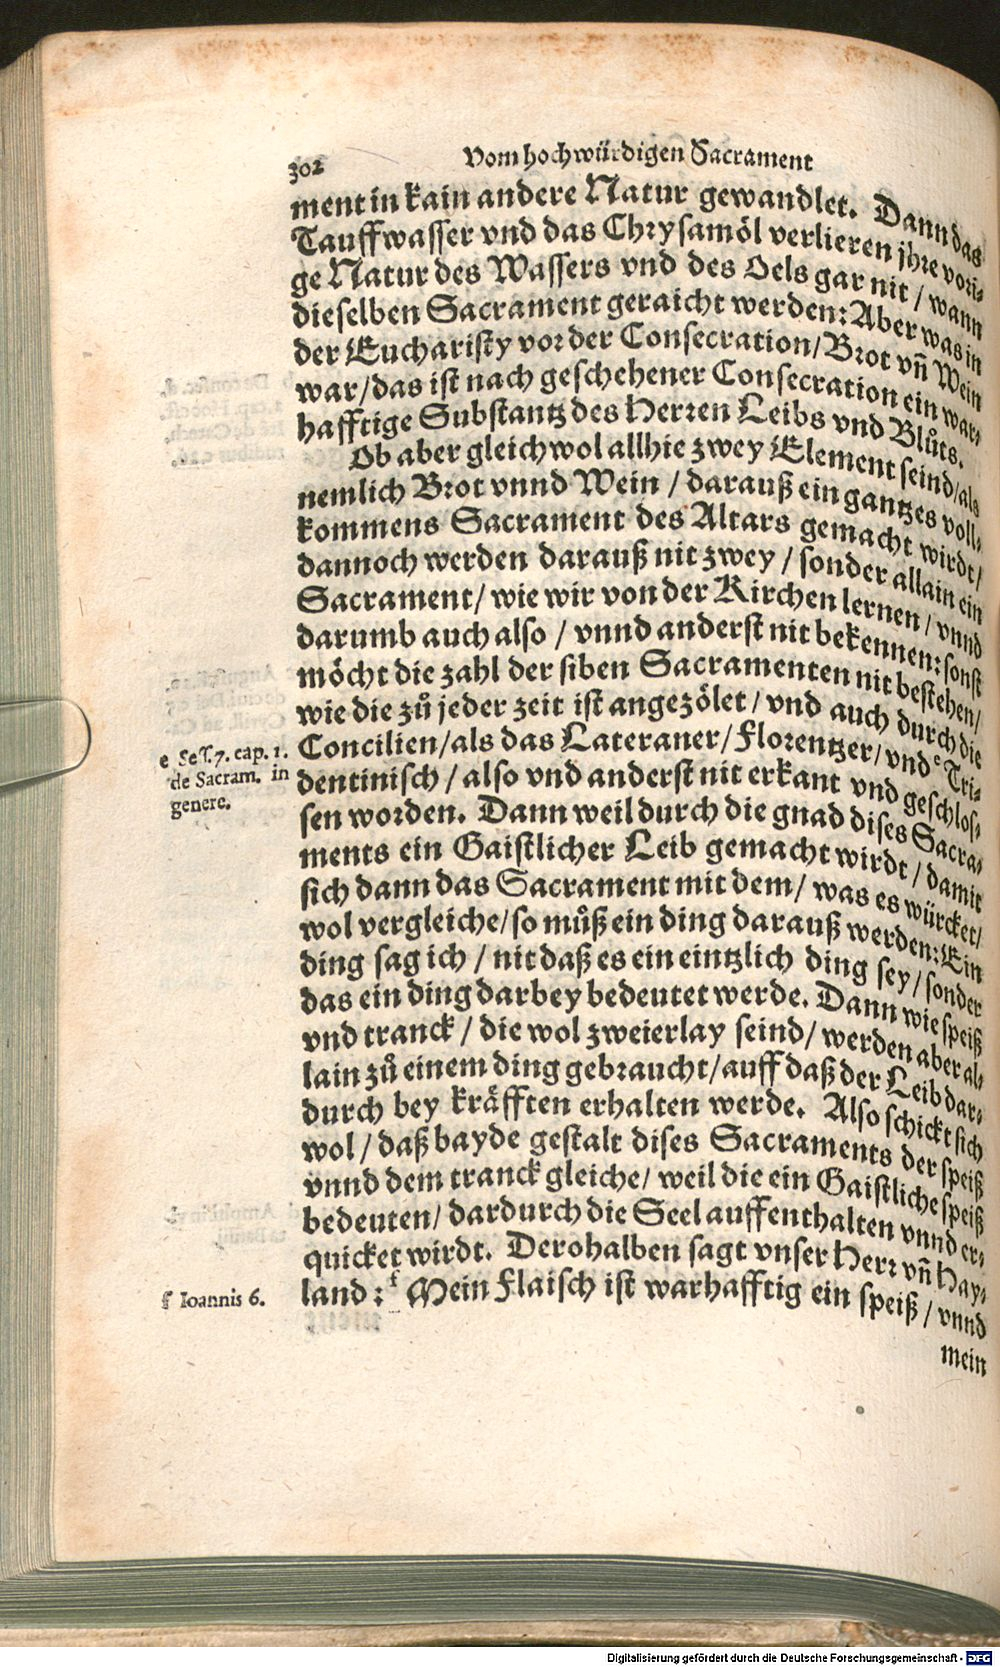 302 Vom hochwürdigen Sacrament
ment in kain andere Natur gewandlet. Dann das
Tauffwasser vnd das Chrysamöl verlieren jhre vori-
ge Natur des Wassers vnd des Oels gar nit / wann
dieselben Sacrament geraicht werden: Aber was in
der Eucharisty vor der Consecration / Brot vñ Wein
war / das ist nach geschehener Consecration ein war-
hafftige Substantz des Herren Leibs vnd Blůts.
Ob aber gleichwol allhie zwey Element seind / als
nemlich Brot vnnd Wein / darauß ein gantzes voll-
kommens Sacrament des Altars gemacht wirdt /
dannoch werden darauß nit zwey / sonder allain ein
Sacrament / wie wir von der Kirchen lernen / vnnd
darumb auch also / vnnd anderst nit bekennen: sonst
möcht die zahl der siben Sacramenten nit bestehen /
wie die zů jeder zeit ist angezölet / vnd auch durch die
Concilien / als das Lateraner / Florentzer / vnd e Tri-
dentinisch / also vnd anderst nit erkant vnd geschlos-
sen worden. Dann weil durch die gnad dises Sacra-
ments ein Gaistlicher Leib gemacht wirdt / damit
sich dann das Sacrament mit dem / was es würcket /
wol vergleiche / so můß ein ding darauß werden: Ein
ding sag ich / nit daß es ein eintzlich ding sey / sonder
das ein ding darbey bedeutet werde. Dann wie speiß
vnd tranck / die wol zweierlay seind / werden aber al-
lain zů einem ding gebraucht / auff daß der Leib dar-
durch bey kräfften erhalten werde. Also schickt sich
wol / daß bayde gestalt dises Sacraments der speiß
vnnd dem tranck gleiche / weil die ein Gaistliche speiß
bedeuten / dardurch die Seel auffenthalten vnnd er-
quicket wirdt. Derohalben sagt vnser Herr vñ Hay-
land: f Mein Flaisch ist warhafftig ein speiß / vnnd
mein
e Seſ. 7. cap. 1.
de Sacram. in
genere.
f Ioannis 6.
Digitalisierung gefördert durch die Deutsche Forschungsgemeinschaft - DFG